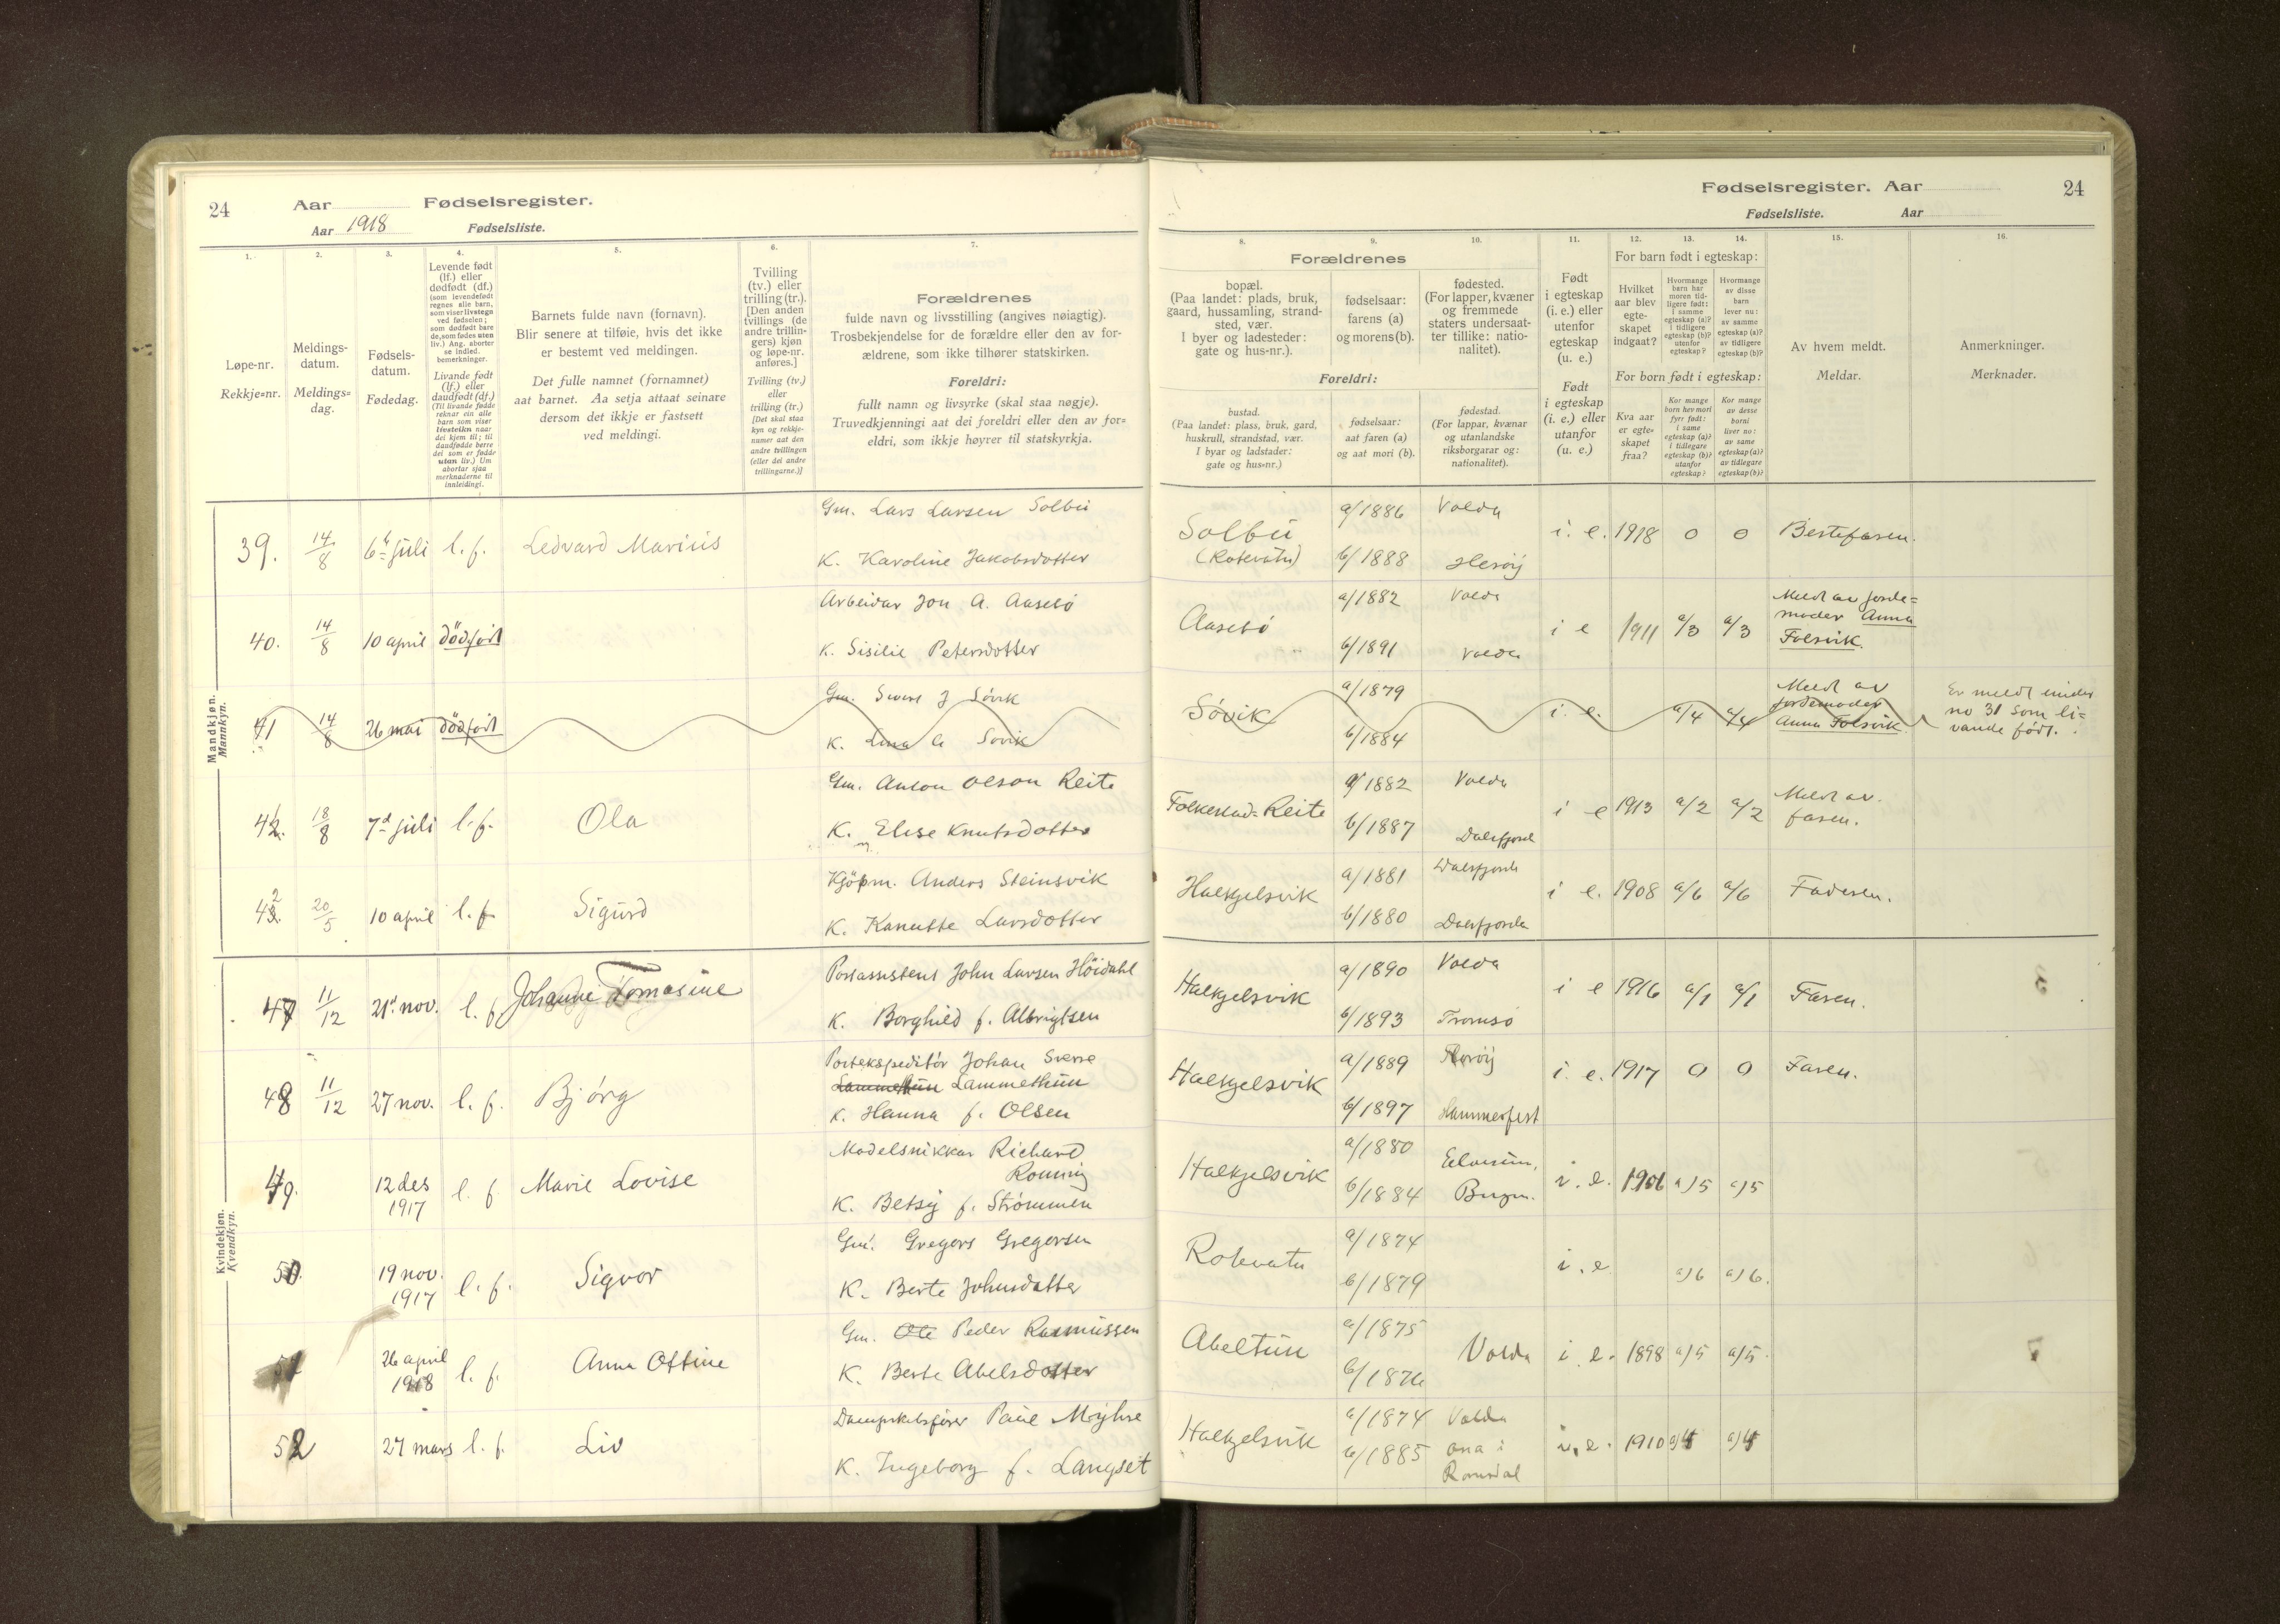 24
Aar
Fødselsregister.
Aar 1918
Fødselsliste.
1.
Løpe-nr.
Rekkje=nr.
2.
Meldings-
datum.
Meldings=
dag.
3.
Fødsels-
datum.
Fødedag.
4.
Levende født
(lf.) eller
dødfødt (df.)
(som levendefødt
regnes alle barn,
som viser livstegn
ved fødselen;
som dødfødt bare
de, som fødes uten
liv.) Ang. aborter
se indled.
bemerkninger.
Livande født
(lf.) eller
daudfødt (df.)
(Til livande fødde
reknar ein alle
barn som viser
livsteikn naar
dei kjem til; til
daudfødde berre
dei som er fødde
utan liv.) Um
abortar sjaa
merknaderne til
innleidingi.
5.
Barnets fulde navn (fornavn).
Blir senere at tilføie, hvis det ikke
er bestemt ved meldingen.
Det fulle namnet (fornamnet)
aat barnet. Aa setja attaat seinare
dersom det ikkje er fastsett
ved meldingi.
6.
Tvilling
(tv.) eller
trilling (tr.).
[Den anden
tvillings (de
andre trillin-
gers) kjøn
og løpe-nr.
anføres.]
Tvilling (tv.)
eller
trilling (tr.)
[Det skal staa
kyn og rekkje-
numer aat den
andre tvillingen
(eller dei andre
trillingarne.)]
7.
Forældrenes
fulde navn og livsstilling (angives nøiagtig).
Trosbekjendelse for de forældre eller den av for-
ældrene, som ikke tilhører statskirken.
Foreldri:
fullt namn og livsyrke (skal staa nøgje).
Truvedkjenningi aat dei foreldri eller den av for=
eldri, som ikkje høyrer til statskyrkja.
Fødselsregister. Aar
24
Fødselsliste.
Aar
Forældrenes
8.
bopæl.
(Paa landet: plads, bruk,
gaard, hussamling, strand-
sted, vær.
I byer og ladesteder:
gate og hus-nr.).
9.
fødselsaar:
farens (a)
og morens (b).
10.
fødested.
(For lapper, kvæner
og fremmede
staters undersaat-
ter tillike: natio-
nalitet).
Foreldri:
bustad.
(Paa landet: plass, bruk, gard,
huskrull, strandstad, vær.
I byar og ladstader:
gate og hus=nr.)
fødselsaar:
aat faren (a)
og aat mori (b).
fødestad.
(For lappar, kvænar
og utanlandske
riksborgarar og:
nationalitet).
11.
Født
i egteskap
(i. e.) eller
utenfor
egteskap
(u. e.)
Født
i egteskap
(i. e.) eller
utanfor
(u. e.)
12. 13. 14.
For barn født i egteskap:
Hvilket
aar blev
egte-
skapet
indgaat?
Hvormange
barn har
moren tid-
ligere født:
i samme
egteskap (a)?
i tidligere
egteskap (b)?
utenfor
egteskap?
Hvormange
av disse
barn
lever nu:
av samme
egteskap (a)?
av tidligere
egteskap (b)?
For born født i egteskap:
Kva aar
er egte-
skapet
fraa?
Kor mange
born hev mori
fyrr født:
i same
egteskap (a)?
i tidlegare
egteskap (b)?
utanfor
egteskap?
Kor mange
av desse
borni
liver no:
av same
egteskap (a)?
av tidlegare
egteskap (b)?
15.
Av hvem meldt.
Meldar.
16.
Anmerkninger.
Merknader.
Mandkjøn.
Mannkyn.
39. 14/8 6te juli l. f. Ledvard Marius
Gm. Lars Larsen Solbu
K. Karoline Jakobsdotter
Solbu
(Rotevatn)
a/1886 Volda
b/1888 Herøy
i. e. 1918 0 0 Bestefaren.
40. 14/8 10 april dødfødt
Arbeidar Jon A. Aasebø
K. Sisilie Petersdotter
Aasebø
a/1882 Volda
b/1891 Volda
i e 1911 a/3 a/3
Meldt av jorde=
moder Anna
Folsvik.
41 14/8 26 mai dødfødt
Gm. Sivert J Søvik
K. Lina Søvik
Søvik
a/1879
b/1884
i. e. a/4 a/4
Meldt av
jordemoder
Anna Folsvik.
Er meldt under
no 31 som li=
vande født.
42. 18/8 7d juli l. f. Ola
Gm. Anton Olson Reite
K. Elise Knutsdotter
Folkestad=Reite
a/1882 Volda
b/1887 Dalsfjord
i e 1913 a/2 a/2
Meldt av.
faren.
42. 20/5 10 april l. f. Sigurd
Kjøpm. Anders Steinsvik
K. Kanutte Larsdotter
Halkjelsvik
a/1881 Dalsfjord
b/1880 Dalsfjorden
i e. 1908 a/6 a/6 Faderen.
Kvindekjøn.
Kvendkyn.
47 11/12 21d nov. l. f. Johanne Tomasine
Postassistent John Larsen Höidahl
K. Borghild f. Albrigtsen
Halkjelsvik
a/1890 Volda
b/1893 Tromsø
i e 1916 a/1 a/1 Faren.
48 11/12 27 nov. l. f. Bjørg
Postekspeditør Johan Sverre
Lammethun Lammethun
K. Hanna f. Olsen
Halkjelsvik
a/1889 Florøy
b/1897 Hammerfest
i. e. 1917 0 0 Faren.
49. 12 des
1917 l. f Marie Lovise
Modelsnikkar Richard
Roming
K. Betsy f. Strømmen
Halkjelsvik
a/1880 Elverum,
b/1884 Bergen.
i. e. 1906 a)5 a)5
50. 19 nov.
1917 l. f. Sigvor
Gm. Gregers Gregersen
K. Berte Johnsdatter
Rotevatn
a/1874
b/1879
i. e a)6 a)6.
51 26 april
1918 l. f. Anna Ottine
Gm. Ole Peder Rasmussen
K. Berte Abelsdotter
Abeltun
a/1875
b/1876
Volda i. e. 1898 a)5 a)5.
52 27 mars l. f. Liv
Dampskibsfører Paul Myhre
K. Ingeborg f. Langset
Halkjelsvik
a/1874 Volda
b/1885 i
Romsdal
i. e. 1910 a)4 a)4